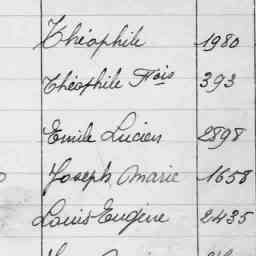 Théophile 1980
Théophile Fois 393
Emile Lucien 2898
Joseph Marie 1658
Louis Eugène 2435